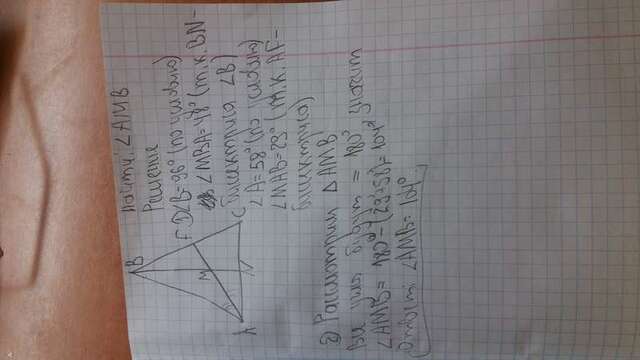 Найти: ∠AMB
Решение
1) ∠B=96° (по условию)
∠MBA=48° (т.к. BN-
биссектриса ∠B)
∠A=58° (по условию)
∠MAB=29° (т.к. AF-
биссектриса)
B
F
M
C
A
N
2) Рассмотрим △AMB
Все углы будут = 180° значит
∠AMB= 180°-(29+58)=104°
Ответ: ∠AMB= 104°